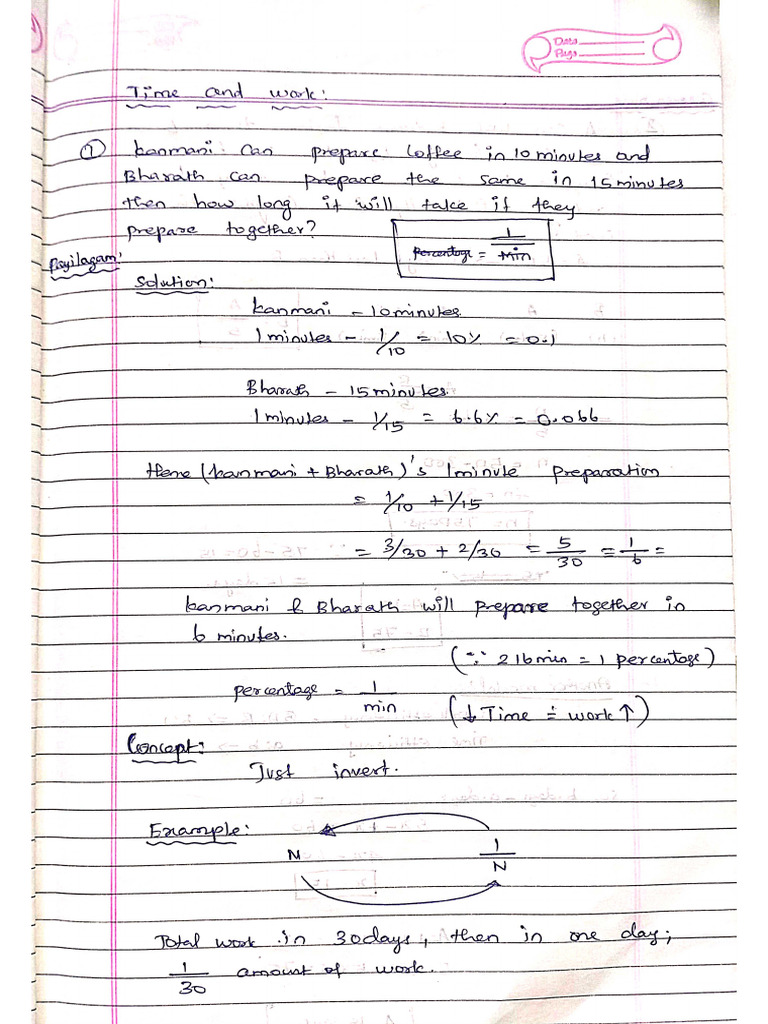 Date
Page
Time and work:
① Kanmani can prepare coffee in 10 minutes and
Bharath can prepare the same in 15 minutes
then how long it will take if they
prepare together?
percentage = 1/min
Payilagam:
Solution:
Kanmani - 10 minutes.
1 minutes - 1/10 = 10% = 0.1
Bharath - 15 minutes.
1 minutes - 1/15 = 6.6% = 0.066
Hene (Kanmani + Bharath)'s 1 minute preparation
= 1/10 + 1/15
= 3/30 + 2/30 = 5/30 = 1/6 =
Kanmani & Bharath will prepare together in
6 minutes.
(∵ 216min = 1 percentage)
percentage = 1/min
(↓ Time = work ↑)
Concept:
Just invert.
Example:
N 1/N
Total work in 30 days, then in one day;
1/30 amount of work.